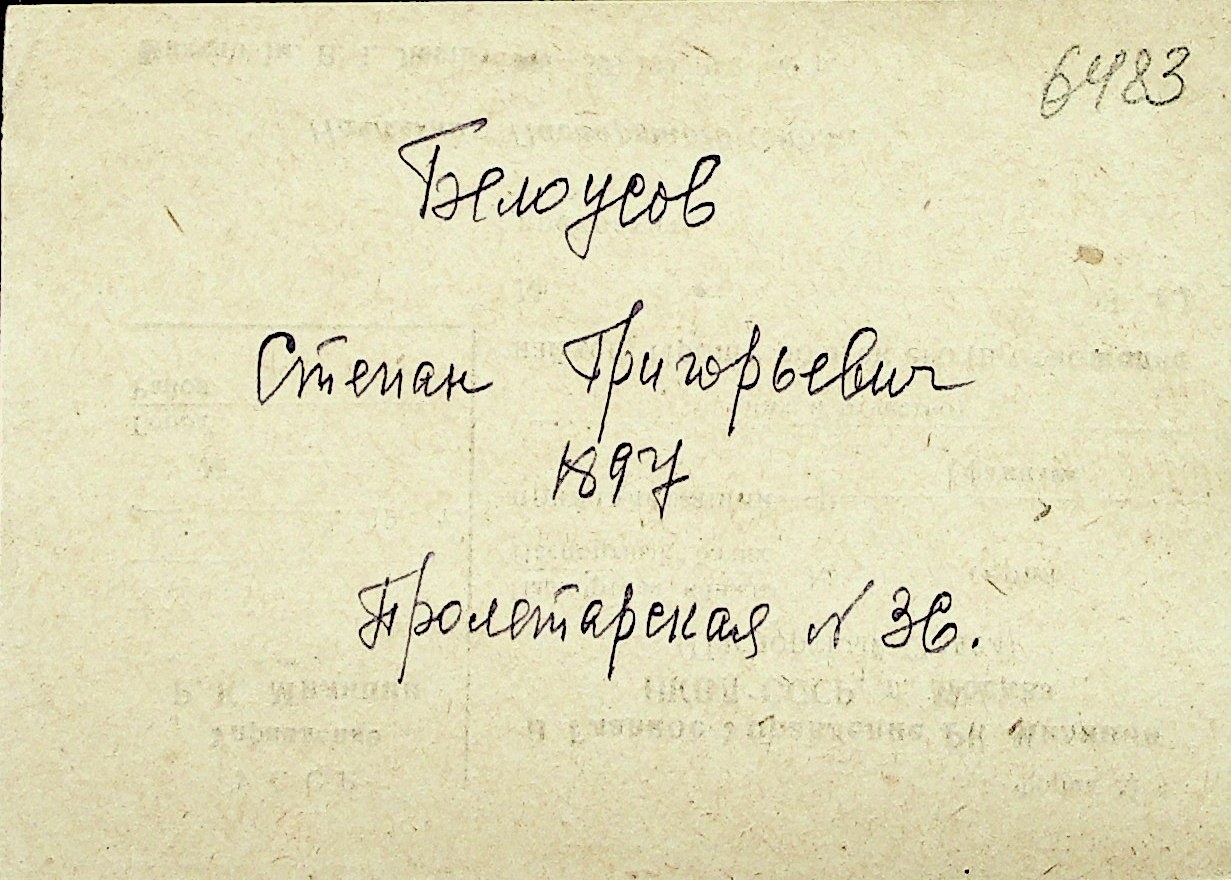 6483
Белоусов
Степан Григорьевич
1897
Пролетарская № 36.